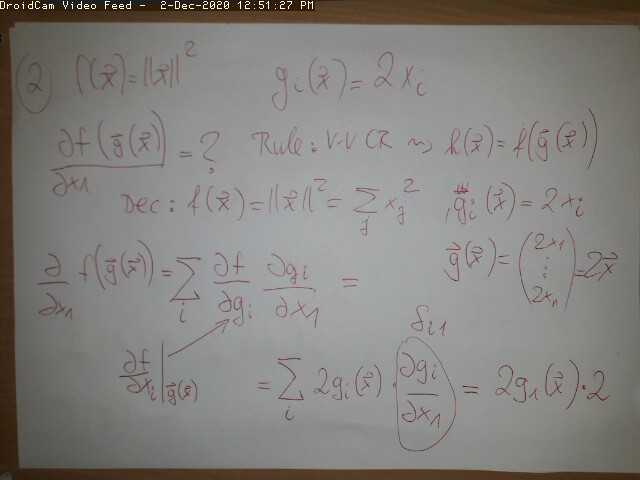 DroidCam Video Feed - 2-Dec-2020 12:51:27 PM
② f(x⃗) = ||x⃗||² gᵢ(x⃗) = 2xᵢ
∂f(g⃗(x⃗))/∂x₁ = ? Rule: V-V CR ⇝ h(x⃗) = f(g⃗(x⃗))
Dec: f(x⃗) = ||x⃗||² = Σⱼ xⱼ² , gᵢ(x⃗) = 2xᵢ
g⃗(x⃗) = (2x₁ ⋮ 2xₙ) = 2x⃗
∂/∂x₁ f(g⃗(x⃗)) = Σᵢ ∂f/∂gᵢ ∂gᵢ/∂x₁ =
δᵢ₁
∂f/∂xᵢ |g⃗(x⃗) = Σᵢ 2gᵢ(x⃗) · ∂gᵢ/∂x₁ = 2g₁(x⃗) · 2